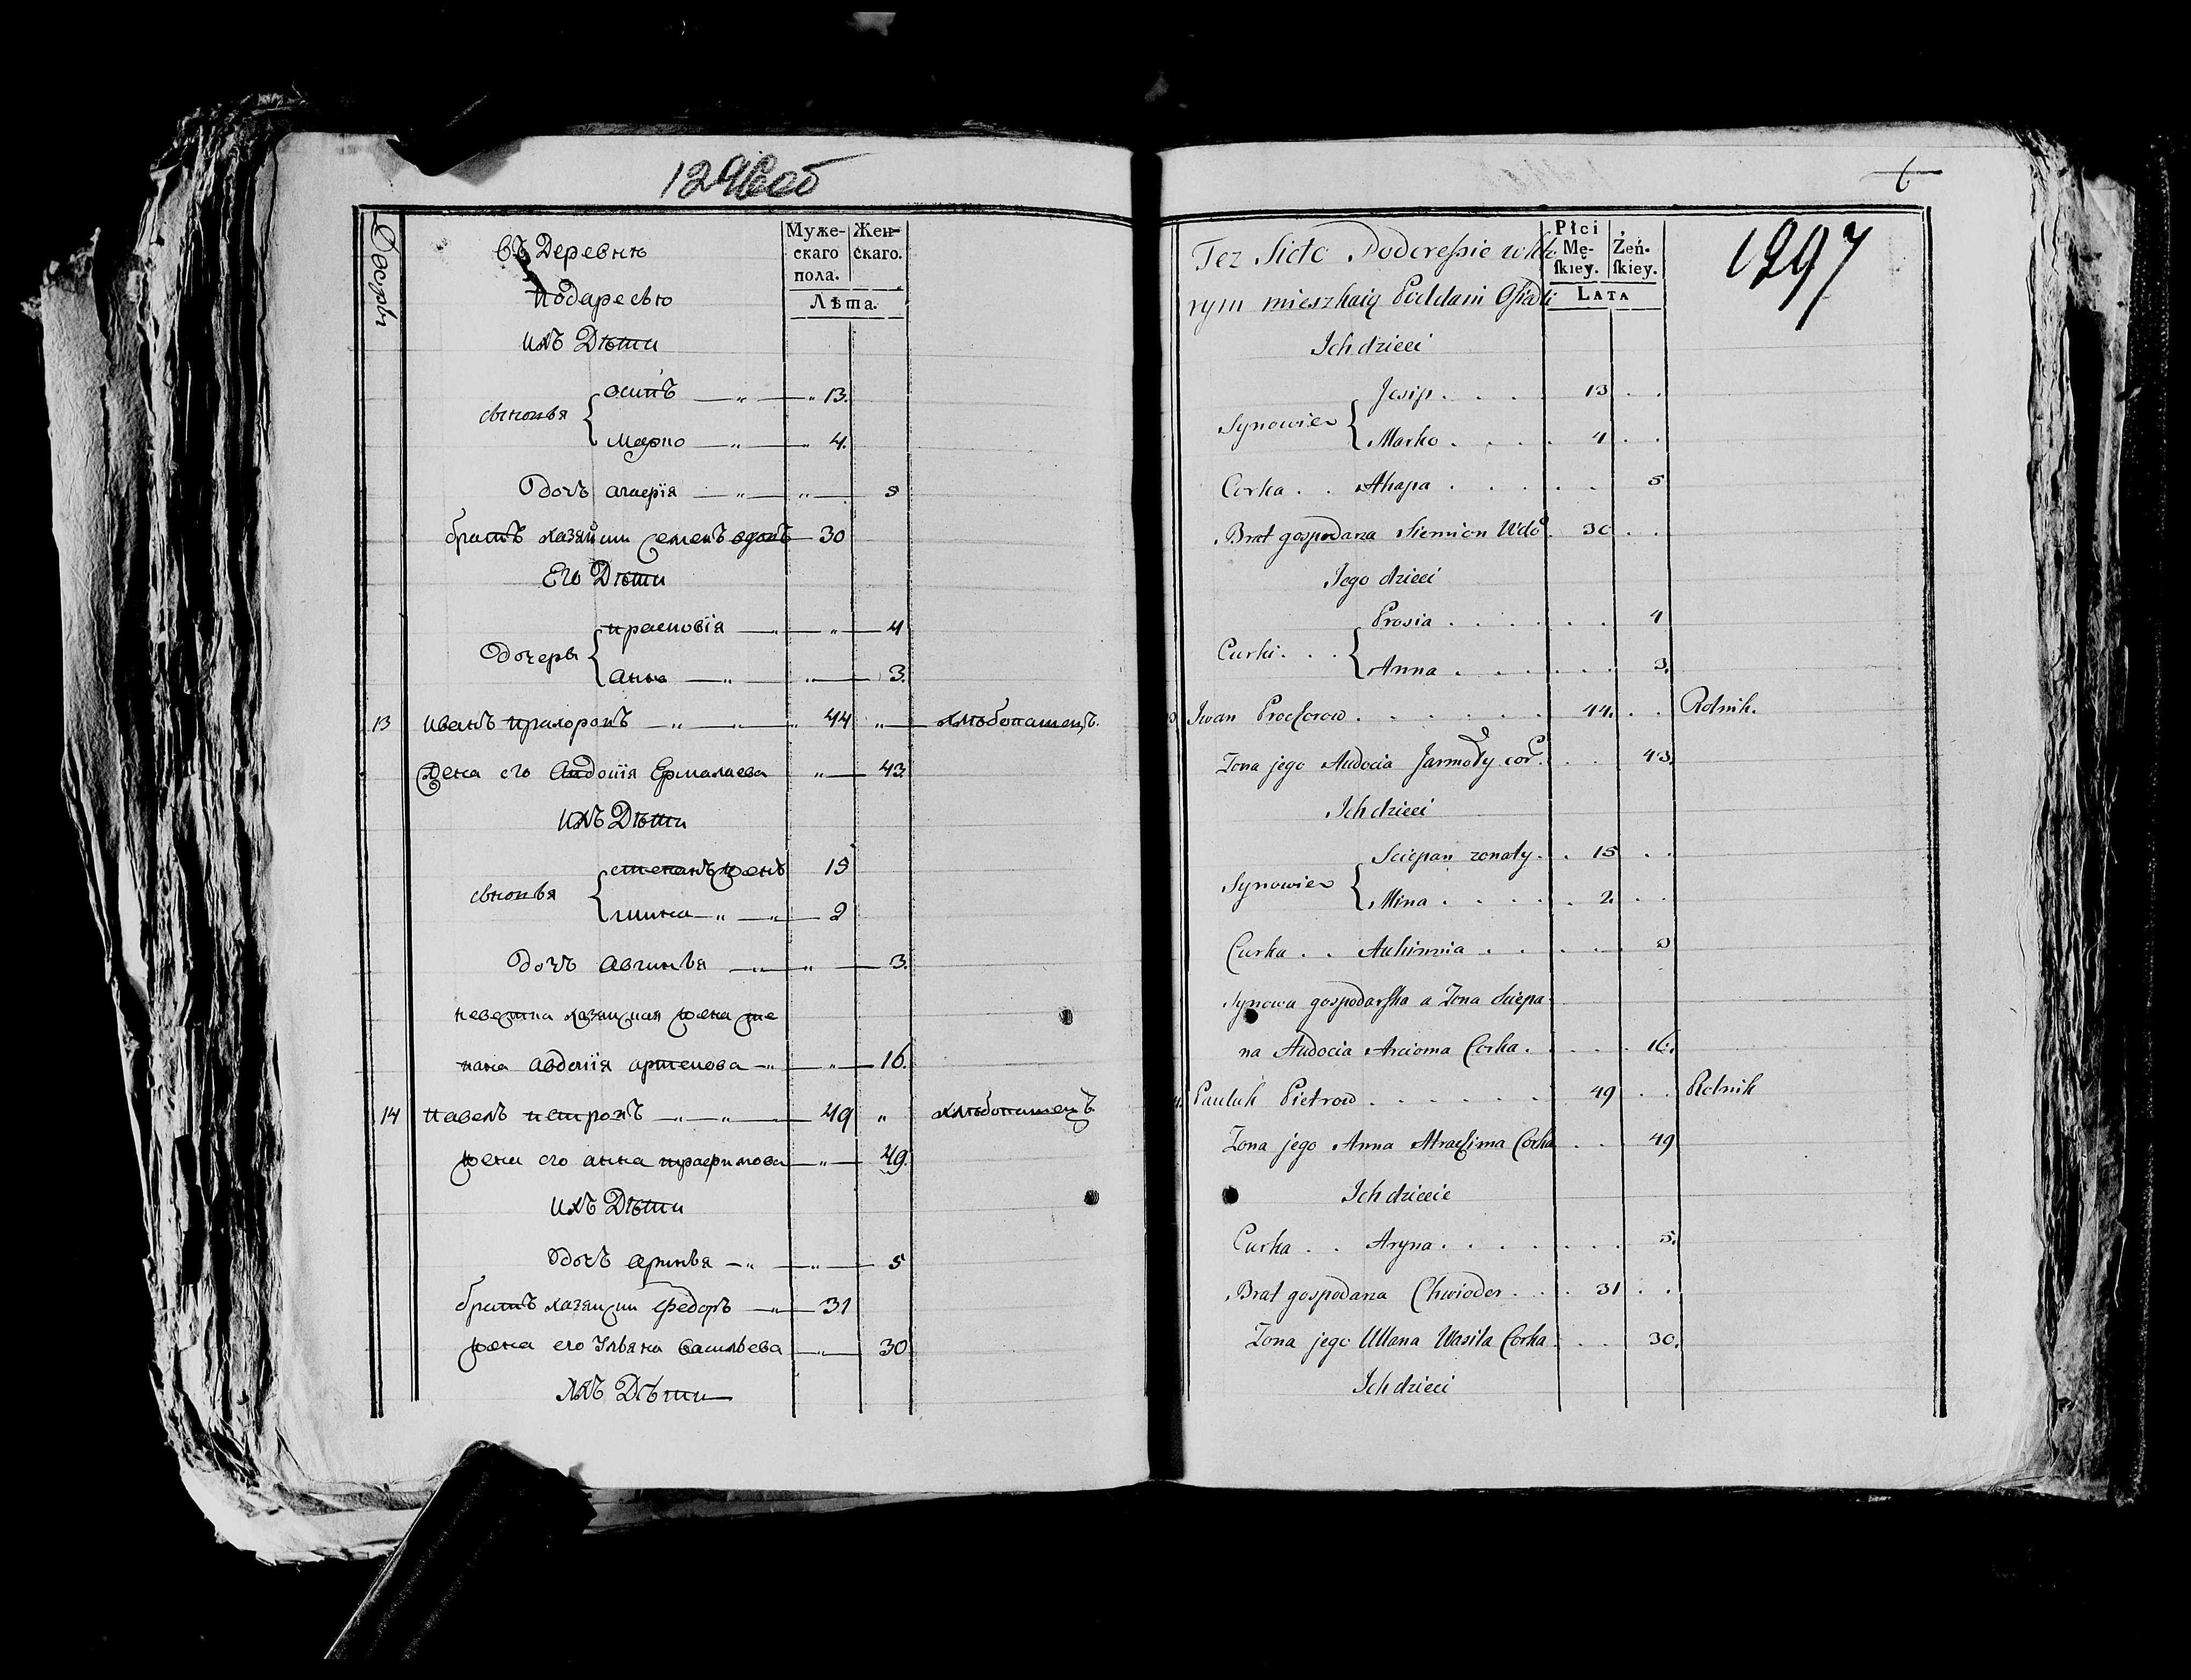 1296об
Дворы
въ Деревни
Подаресью
Муже-
скаго
пола.
Жен-
скаго.
Лѣта.
ихъ Дѣти
сыновья
осипъ 13.
марко 4.
дочь агаерія 5
братъ хазяйши семенъ вдовъ 30
Его Дѣти
дочеры
прасковія 4
анна 3.
13 иванъ прахоровъ 44 хлѣбопашецъ
жена его авдотія Ермалаева 43.
ихъ Дѣти
сыновья
степанъ женъ 15
мина 2
дочь авгинья 3.
невестка хазяйская жена сте
пана авдотія артемова 16.
14 павелъ петровъ 49 хлѣбопашецъ
жена его анна трафимова 49.
ихъ Дѣти
дочь аринья 5
братъ хазяйши федоръ 31
жена его Ульяна васильева 30
ихъ Дѣти
1297
Tez Sioło Podoressie w któ
rym mieszkaią Poddani Osiadli
Płci
Mę-
skiey.
Żeń-
skiey.
LATA
Ich dzieci
Synowie
Josip 13
Marko 4
Corka Ahapa 5
Brat gospodarza Siemion Wdo 30
Jego dzieci
Curki
Prosia 4
Anna 3.
Iwan Prochorow 44. Rolnik.
Zona jego Audocia Jarmoły cor. 43.
Ich dzieci
Synowie
Sciepan zonaty 15
Mina 2
Curka Auhinnia 3
Synowa gospodarska a Zona Sciepa
na Audocia Arcioma Corka 16.
Pauluk Pietrow 49 Rolnik
Zona jego Anna Atrachima Corka 49
Ich dziecie
Curka Aryna 5.
Brat gospodarza Chwiodor 31
Zona jego Ullana Wasila Corka 30.
Ich dzieci